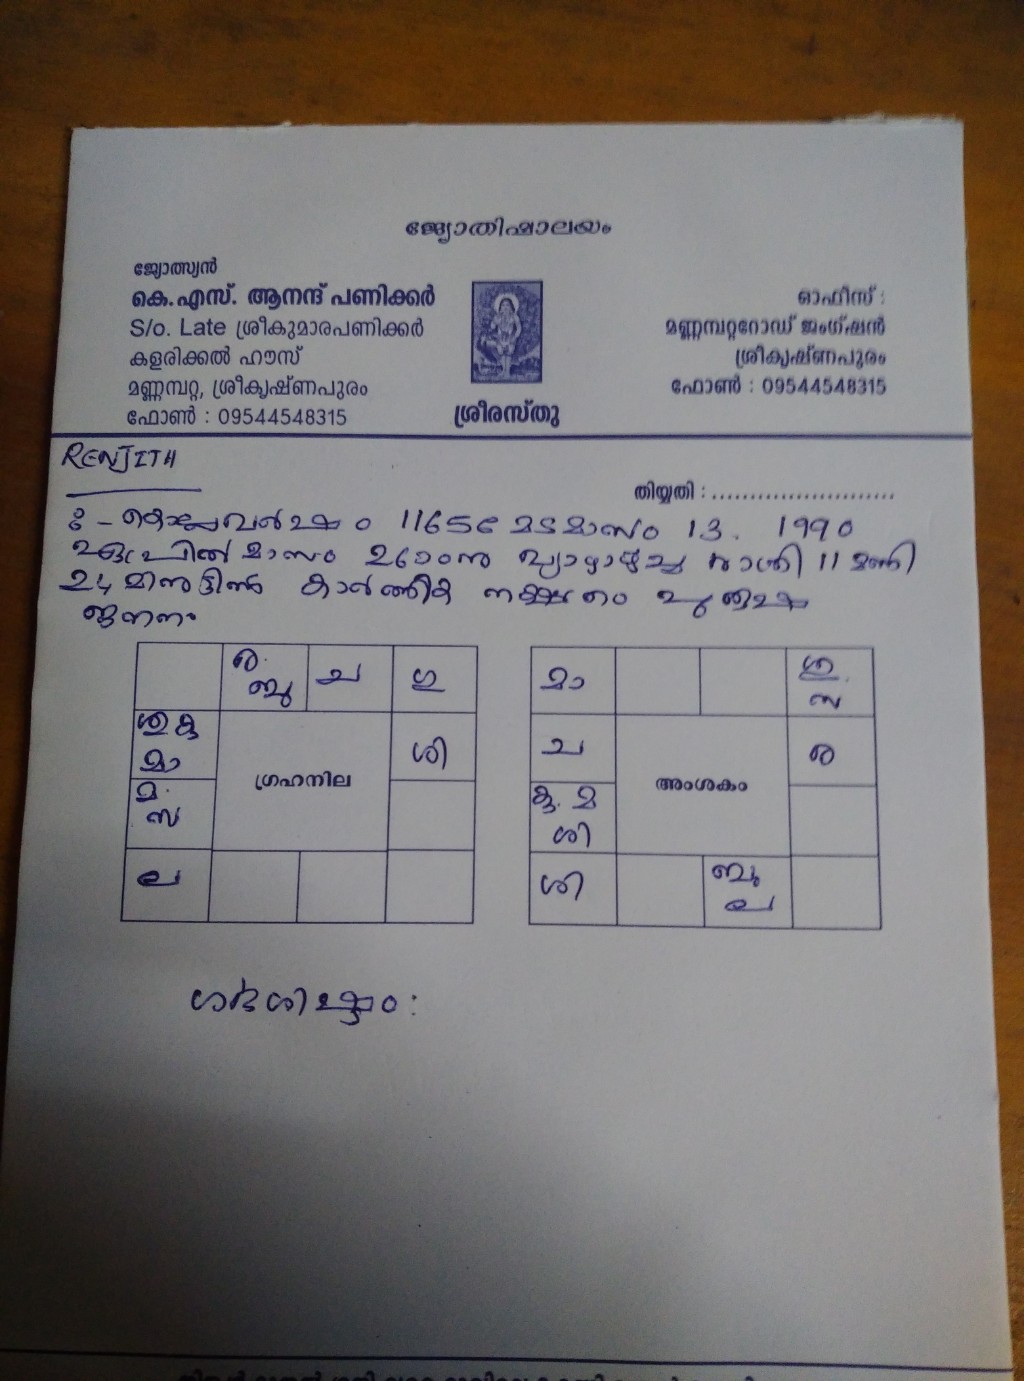 ജ്യോതിഷാലയം
ജ്യോത്സ്യൻ
കെ.എസ്. ആനന്ദ് പണിക്കർ
S/o. Late ശ്രീകുമാരപണിക്കർ
കളരിക്കൽ ഹൗസ്
മണ്ണമ്പറ്റ, ശ്രീകൃഷ്ണപുരം
ഫോൺ : 09544548315
ശ്രീരസ്തു
ഓഫീസ് :
മണ്ണമ്പറ്ററോഡ് ജംഗ്ഷൻ
ശ്രീകൃഷ്ണപുരം
ഫോൺ : 09544548315
RENJITH
തിയ്യതി : ........................
1165 മാസം 13. 1990
ഏപ്രിൽ മാസം 26 വ്യാഴാഴ്ച രാത്രി 11 മണി
24 കാർത്തിക നക്ഷത്രം
ജനനം
ര. ച ഗു
ബു
മാ ശി
മ.
സ
ല
ഗ്രഹനില
മാ
സ
ച ര
കു. മ
ശി
ശി ബു
ല
അംശകം